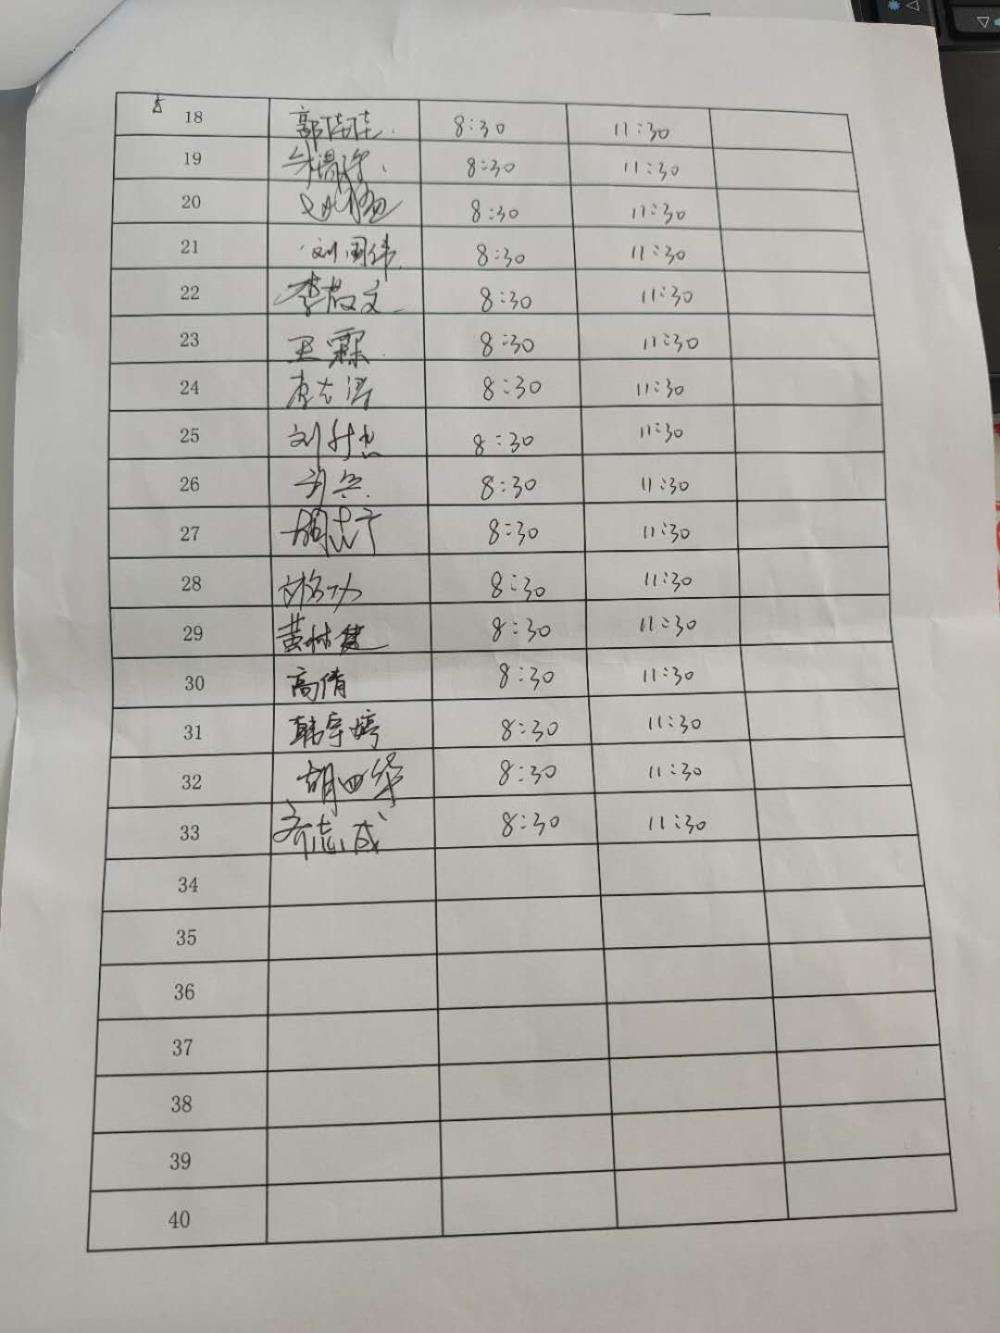 18 郭佳佳 8:30 11:30
19 8:30 11:30
20 8:30 11:30
21 刘国伟 8:30 11:30
22 李敬文 8:30 11:30
23 王霖 8:30 11:30
24 李志涛 8:30 11:30
25 刘 8:30 11:30
26 8:30 11:30
27 8:30 11:30
28 8:30 11:30
29 黄林健 8:30 11:30
30 高倩 8:30 11:30
31 韩宇婷 8:30 11:30
32 胡四华 8:30 11:30
33 齐志成 8:30 11:30
34
35
36
37
38
39
40